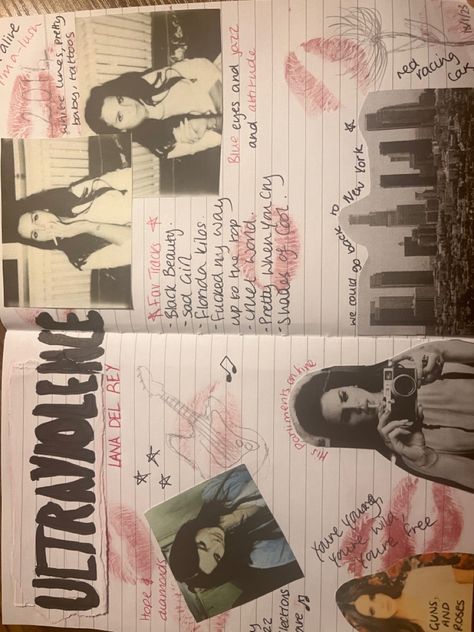 ULTRAVIOLENCE
LANA DEL REY
Hope &
diamonds
His Parliments on fire
You're young,
You're wild,
You're free
GUNS
AND
ROSES
alive
I'm a lush
2014
white lines, pretty
baby, tattoos
Blue eyes and jazz
and attitude
Fav Tracks
- Black Beauty.
- Sad Girl
- Florida kilos.
- Fucked my way
up to the top
- Cruel World.
- Pretty When You Cry
- Shades of Cool.
we could go back to New York
red racing
car